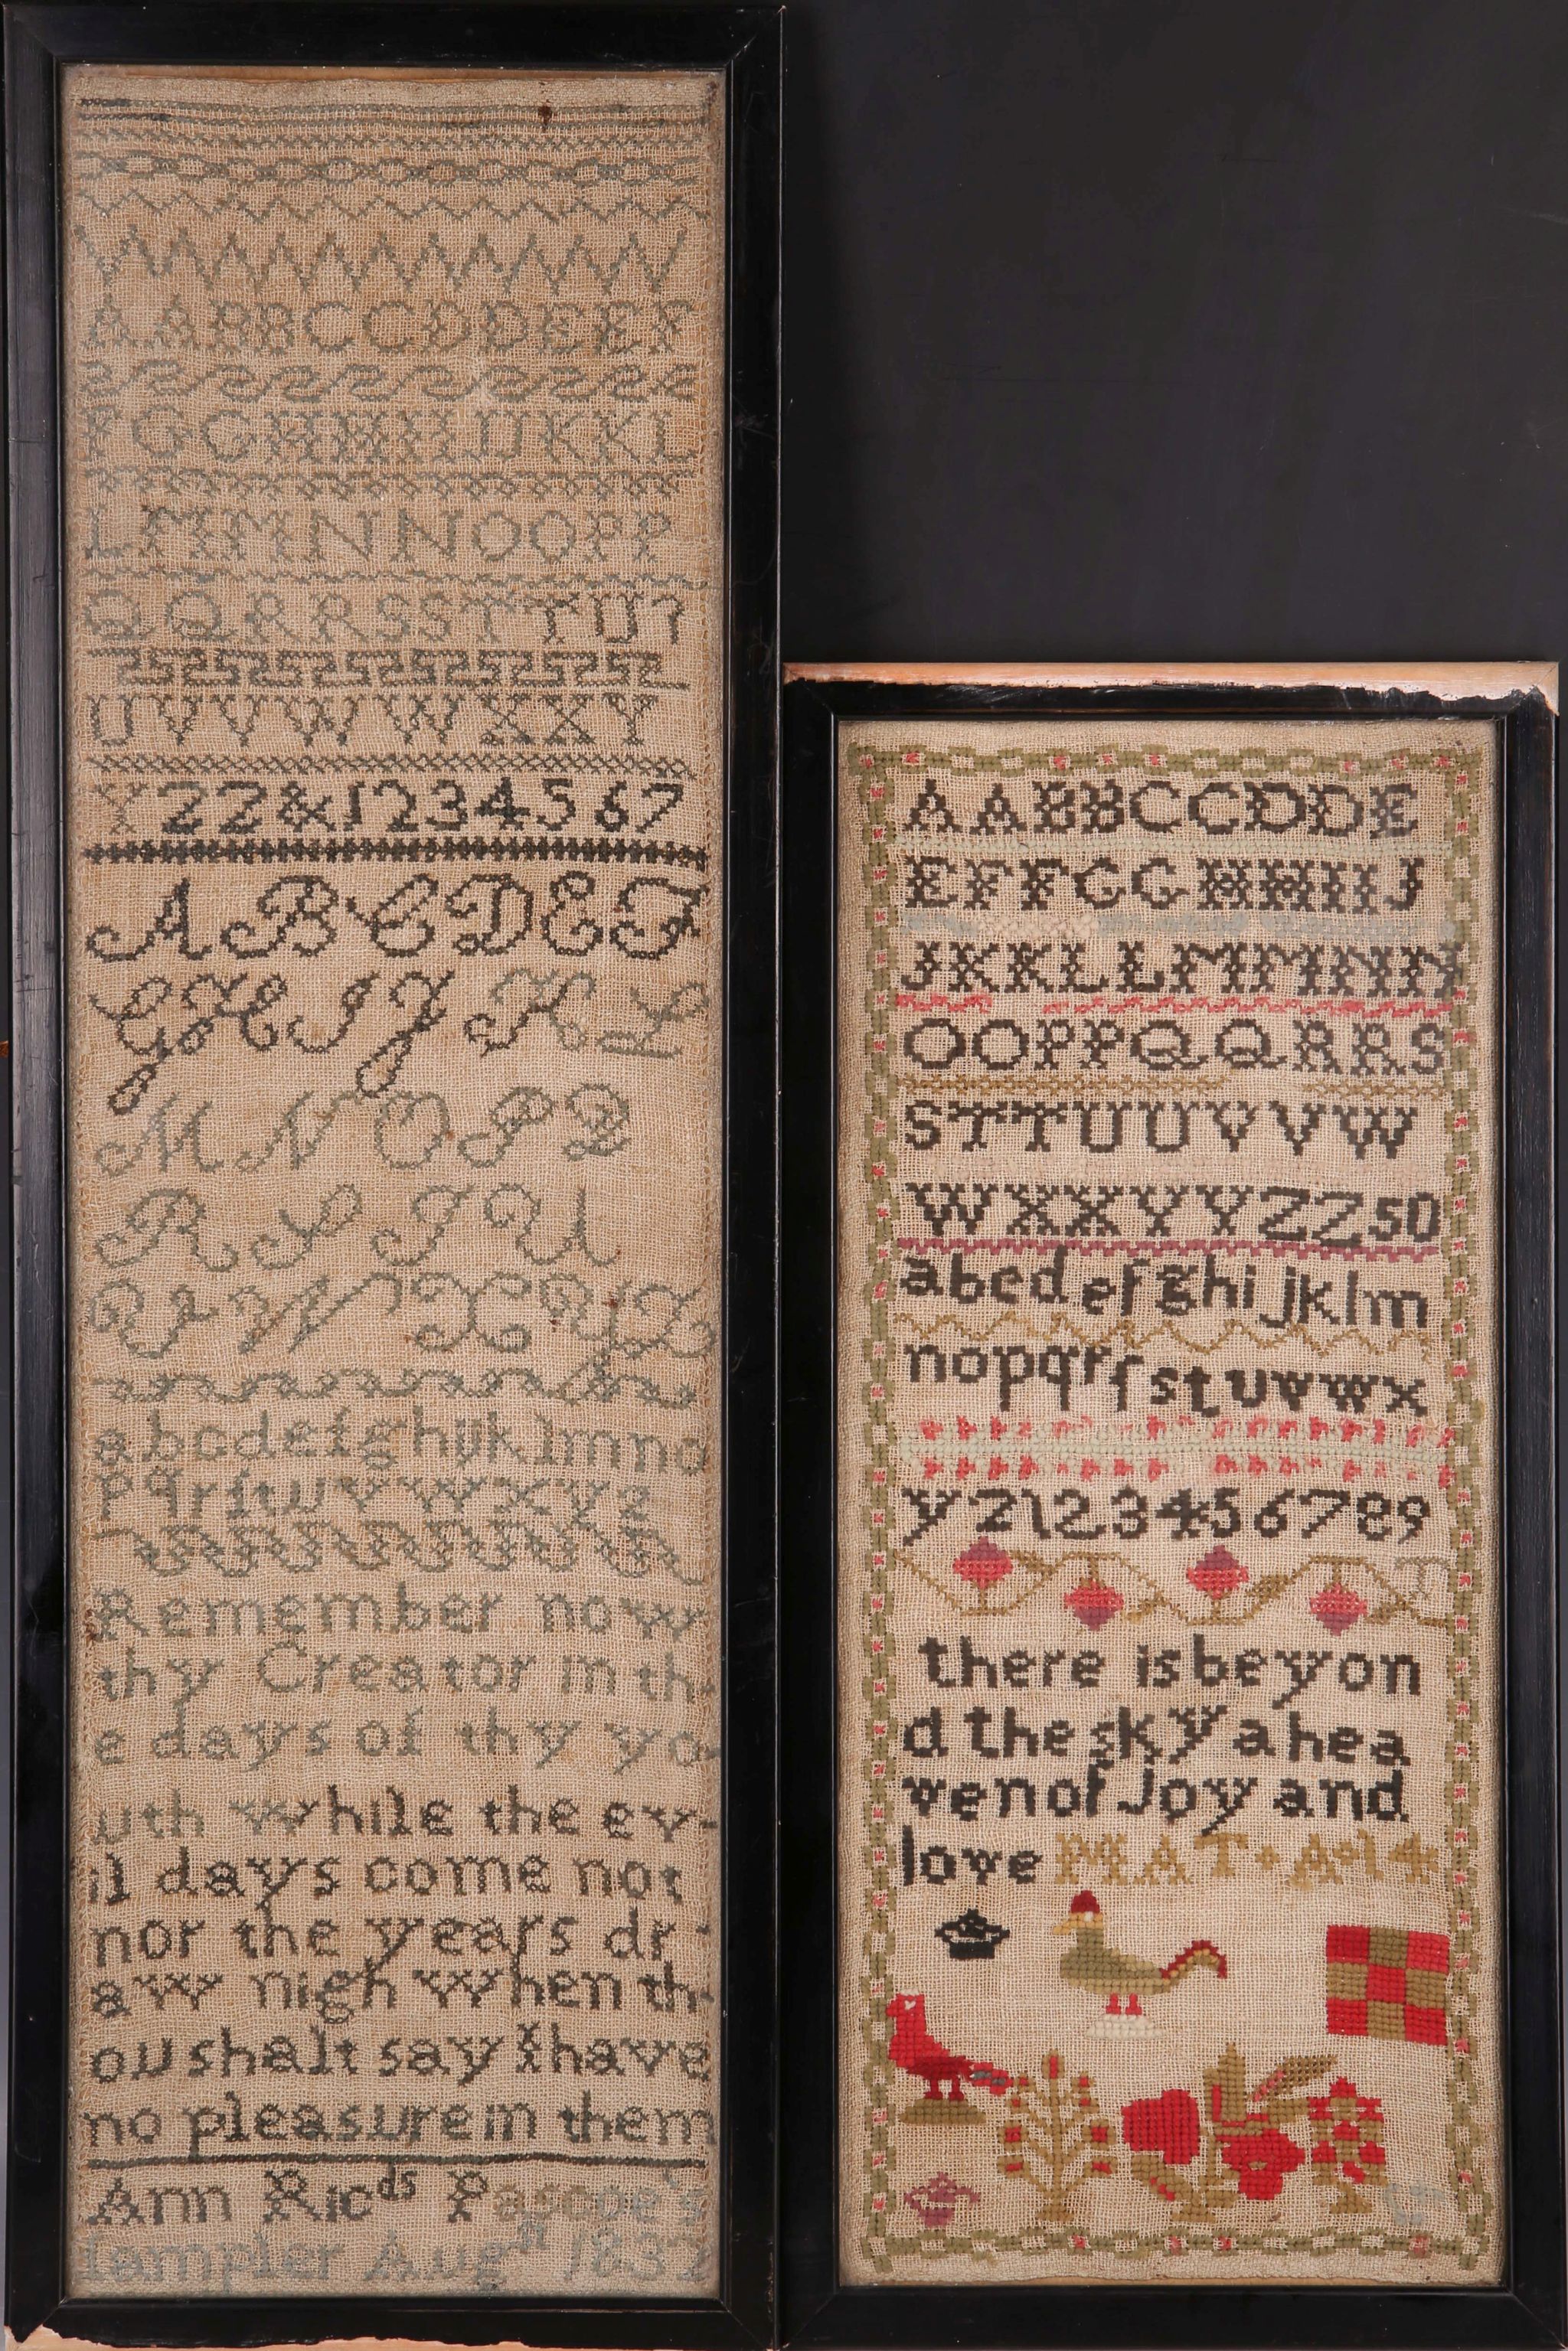 AABBCCDDEEF
FGGHHIIJJKKL
LMMNNOOPP
QQRRSSTTU
UVVWWXXY
YZZ&1234567
ABCDEF
GHIJKL
MNOPQ
RSTU
VWXYZ
abcdefghijklmno
pqrſtuvwxyz
Remember now
thy Creator in th
e days of thy yo
uth while the ev
il days come not
nor the years dr
aw nigh when th
ou shalt say I have
no pleasure in them
Ann Ricds Pascoe's
Sampler Augth 1832
AABBCCDDE
EFFGGHHIIJ
JKKLLMMNN
OOPPQQRRS
STTUUVVW
WXXYYZZ50
abcdefghijklm
nopqrſstuvwx
yz123456789
there is beyon
d the sky a hea
ven of Joy and
love MAT A 14